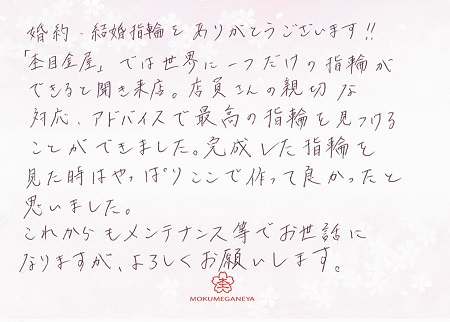 婚約・結婚指輪をありがとうございます!!
「杢目金屋」では世界に一つだけの指輪が
できると聞き来店。店員さんの親切な
対応、アドバイスで最高の指輪を見つける
ことができました。完成した指輪を
見た時はやっぱりここで作って良かったと
思いました。
これからもメンテナンス等でお世話に
なりますが、よろしくお願いします。
杢
MOKUMEGANEYA